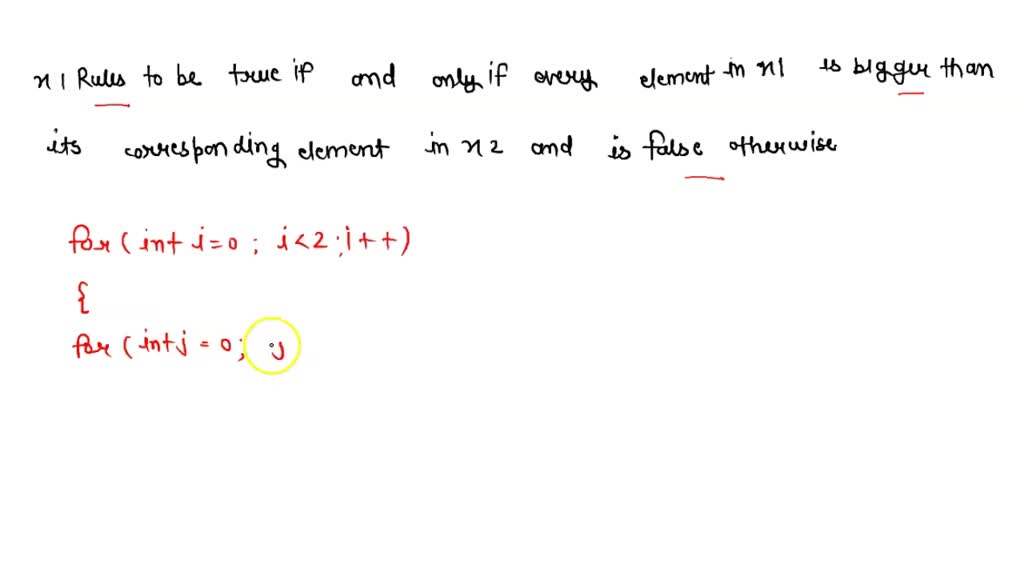 x1 Rules to be true if and only if every element in x1 is bigger than
its corresponding element in x2 and is false otherwise
for ( int i = 0 ; i < 2 ; i + + )
{
for ( int j = 0 ; j